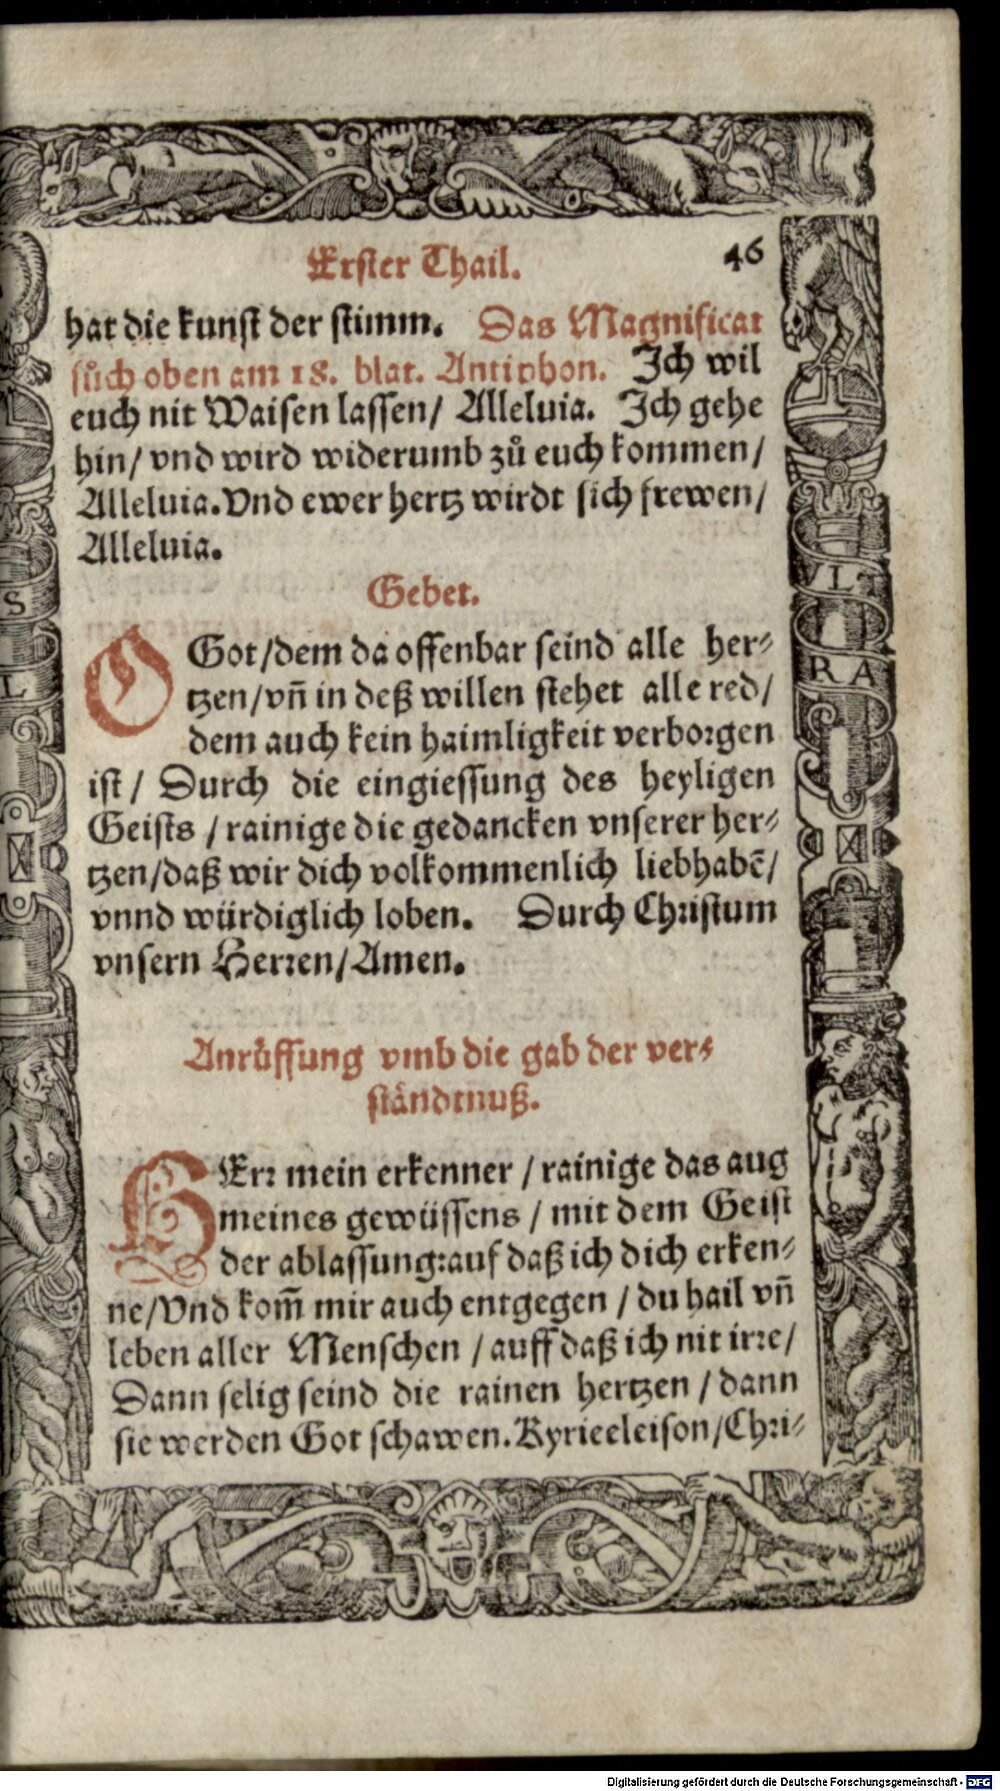 Erster Thail.
46
hat die kunst der stimm. Das Magnificat
sůch oben am 18. blat. Antiphon. Ich wil
euch nit Waisen lassen/ Alleluia. Ich gehe
hin/ vnd wird widerumb zů euch kommen/
Alleluia. Vnd ewer hertz wirdt sich frewen/
Alleluia.
Gebet.
O Got/dem da offenbar seind alle her⸗
tzen/vñ in deß willen stehet alle red/
dem auch kein haimligkeit verborgen
ist/ Durch die eingiessung des heyligen
Geists / rainige die gedancken vnserer her⸗
tzen/daß wir dich volkommenlich liebhabē/
vnnd würdiglich loben. Durch Christum
vnsern Herren/Amen.
Anrůffung vmb die gab der ver⸗
ståndtnuß.
HErr mein erkenner / rainige das aug
meines gewüssens / mit dem Geist
der ablassung:auf daß ich dich erken⸗
ne/Vnd kom̃ mir auch entgegen / du hail vñ
leben aller Menschen / auff daß ich nit irre/
Dann selig seind die rainen hertzen / dann
sie werden Got schawen. Kyrieeleison/Chri⸗
S
L
VL
RA
Digitalisierung gefördert durch die Deutsche Forschungsgemeinschaft - DFG